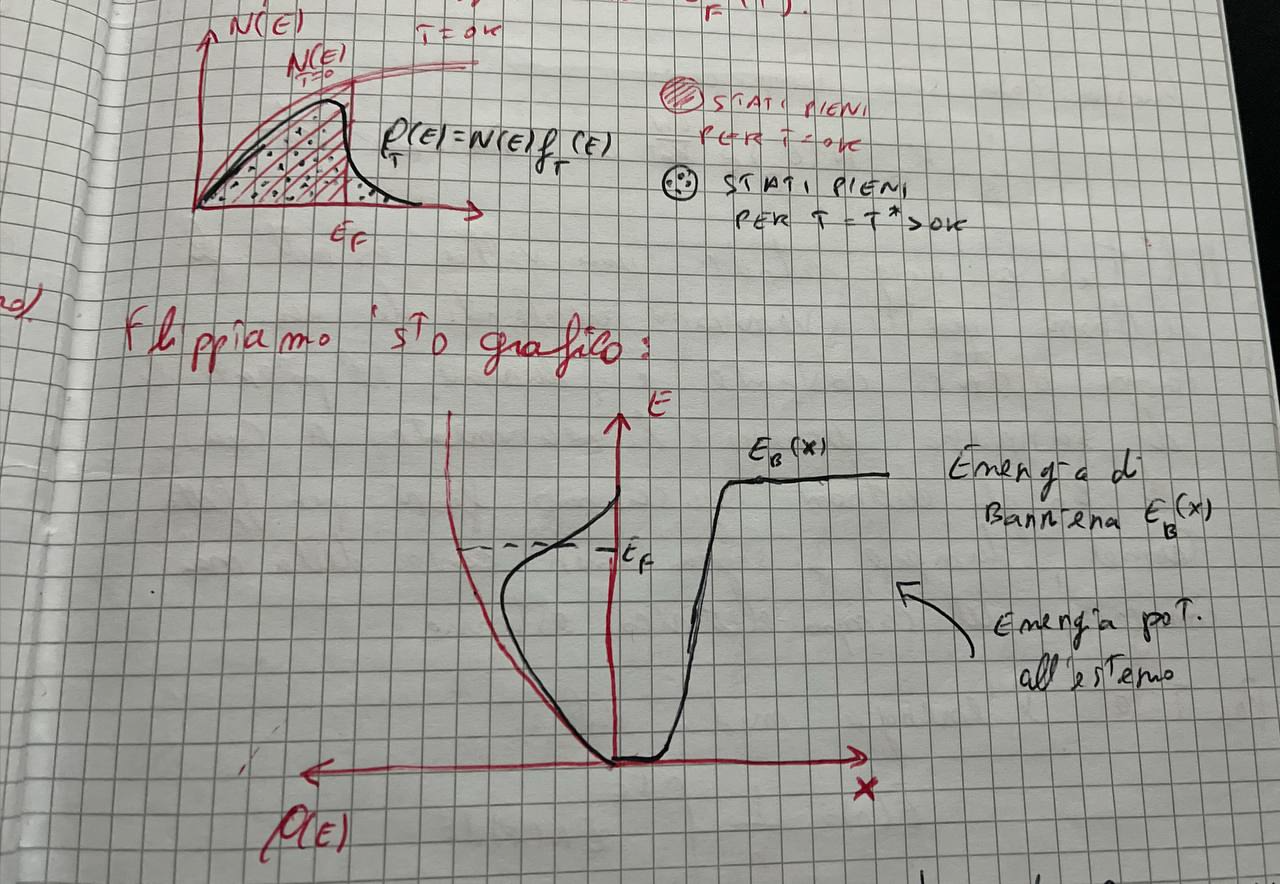 F(T).
N(E)
T=0K
N(E)
T=0
STATI PIENI
PER T=0K
ρ_T(E)=N(E)f_T(E)
STATI PIENI
PER T=T*>0K
E_F
Flippiamo 'sto grafico:
E
E_B(x)
Energia di
Barriera E_B(x)
E_F
Energia pot.
all'esterno
x
ρ(E)